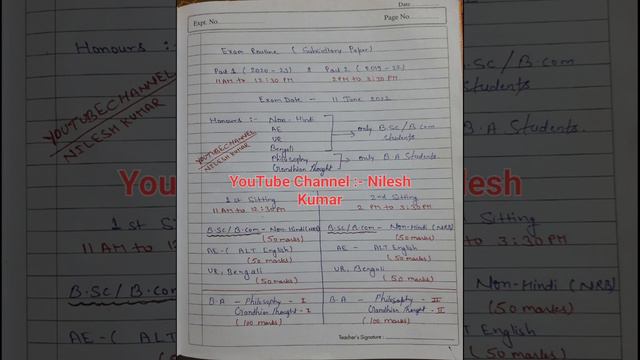 Date
Expt. No.
Page No.
Exam Routine ( Subsidiary Paper)
Part 1 ( 2020-23) & Part 2 ( 2019-22)
11 AM to 12:30 PM 2 PM to 3:30 PM
Exam Date - 11 June 2022
Honours :- Non-Hindi
AE
UR
Bengali
only B.Sc/B.com students
Philosophy
Gandhian thought
only B.A Students
YOUTUBE CHANNEL
NILESH KUMAR
YouTube Channel :- Nilesh
Kumar
1st Sitting
11 AM to 12:30 PM
2nd Sitting
2 PM to 3:30 PM
B.Sc/B.com - Non-Hindi(NRB)
(50 marks)
AE - ( ALT English)
(50 marks)
UR, Bengali
(50 marks)
B.Sc/B.com - Non-Hindi (NRB)
(50 marks)
AE - ALT English
(50 marks)
UR, Bengali
(50 marks)
B.A - Philosophy - I
Gandhian thought - I
(100 marks)
B.A - Philosophy - II
Gandhian thought - II
(100 marks)
Teacher's Signature :
Honours :-
YOUTUBE CHANNEL
NILESH KUMAR
You
1st S
11 AM to 12
B.Sc/B.com
AE - ( ALT
.Sc/B.com
students
B.A Students.
esh
Sitting
3:30 PM
Non-Hindi (NRB)
(50 marks)
T English
(50 marks)